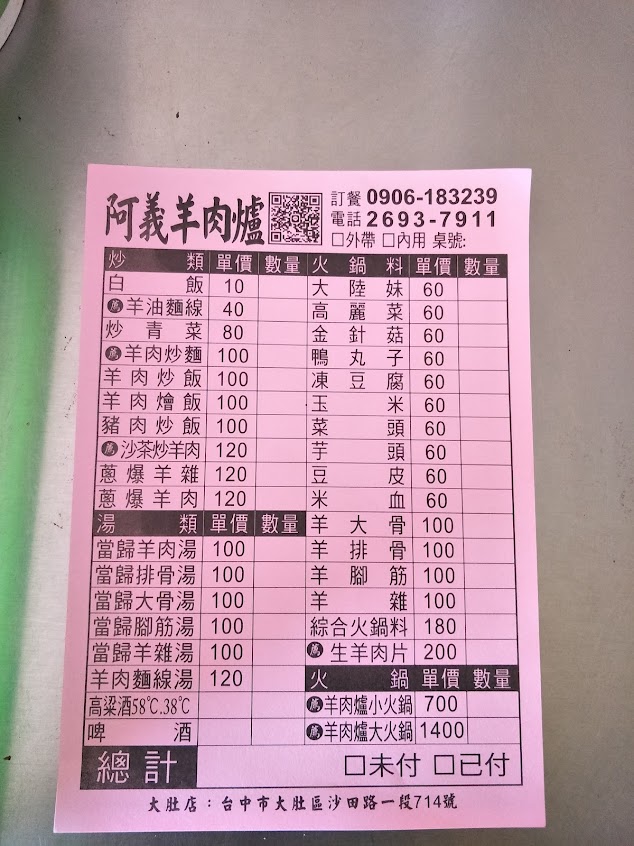 阿義羊肉爐
訂餐 0906-183239
電話 2693-7911
□外帶 □內用 桌號:
炒類 單價 數量
白飯 10
薦 羊油麵線 40
炒青菜 80
薦 羊肉炒麵 100
羊肉炒飯 100
羊肉燴飯 100
豬肉炒飯 100
薦 沙茶炒羊肉 120
蔥爆羊雜 120
蔥爆羊肉 120
湯類 單價 數量
當歸羊肉湯 100
當歸排骨湯 100
當歸大骨湯 100
當歸腳筋湯 100
當歸羊雜湯 100
羊肉麵線湯 120
高粱酒58℃.38℃
啤酒
火鍋料 單價 數量
大陸妹 60
高麗菜 60
金針菇 60
鴨丸子 60
凍豆腐 60
玉米 60
菜頭 60
芋頭 60
豆皮 60
米血 60
羊大骨 100
羊排骨 100
羊腳筋 100
羊雜 100
綜合火鍋料 180
薦 生羊肉片 200
火鍋 單價 數量
薦 羊肉爐小火鍋 700
薦 羊肉爐大火鍋 1400
總計 □未付 □已付
大肚店：台中市大肚區沙田路一段714號